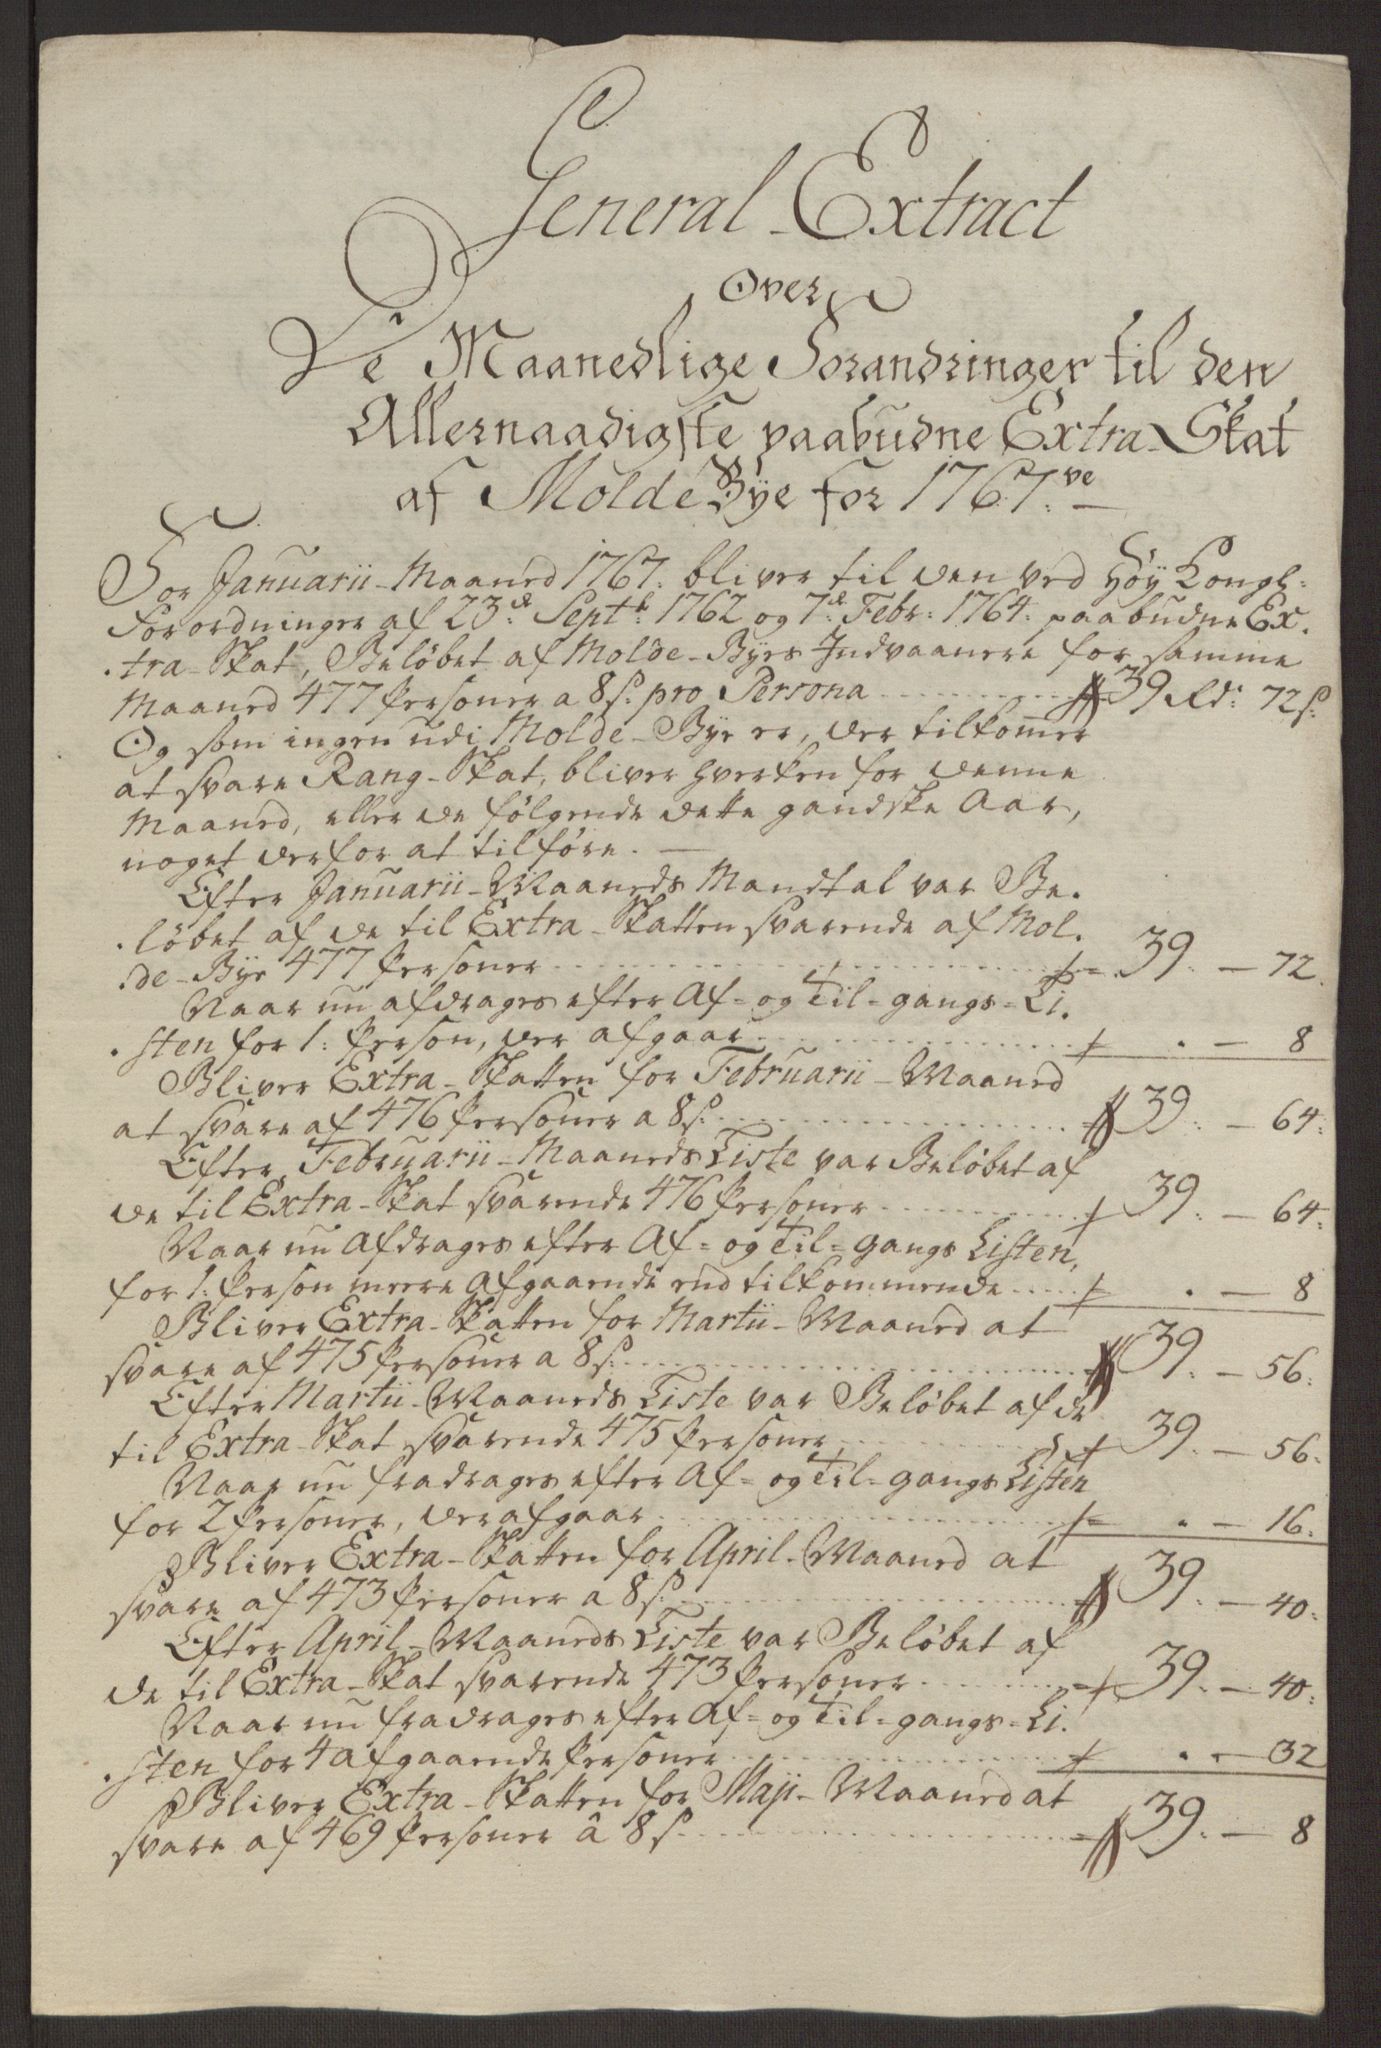 General-Extract
Over
De Maanedlige Forandringer til den
Allernaadigste paabudne Extra-Skat
af Molde Bye for 1767.ve
For Januarii-Maaned 1767. bliver til den ved Høy Kongl:
Forordninger af 23.de Septb: 1762 og 7.de Febr: 1764. paabudne Ex.
.tra-Skat, Beløbet af Molde-Byes Indvaanere for samme
Maaned 477 Personer a 8 s: pro Persona 39 Rd: 72 s:
Og som ingen udi Molde-Bye er, der tilkommer
at svare Rang-Skat, bliver hverken for denne
Maaned, eller de følgende dette gandske Aar,
noget derfor at tilføre. —
Efter Januarii-Maaneds Mandtal var Be.
.løbet af de til Extra-Skatten svarende af Mol.
.de-Bye 477 Personer 39. — 72.
Naar nu afdrages efter Af- og Til-gangs-Li.
.sten for 1. Person, der afgaar . — 8
Bliver Extra-Skatten for Februarii-Maaned
at svare af 476 Personer a 8 s: 39. — 64.
Efter Februarii-Maaneds Liste var Beløbet af
de til Extra-Skat svarende 476 Personer 39. — 64.
Naar nu afdrages efter Af- og Til-gangs Listen,
for 1. Person meere Afgaaende end tilkommende . — 8
Bliver Extra-Skatten for Martii-Maaned at
svare af 475 Personer a 8 s: 39. — 56.
Efter Martii-Maaneds Liste var Beløbet af de
til Extra-Skat svarende 475 Personer, 39. — 56.
Naar nu fradrages efter Af- og Til-gangs Listen
for 2 Personer, der afgaar . — 16.
Bliver Extra-Skatten for April-Maaned at
svare af 473 Personer a 8 s: 39. — 40.
Efter April-Maaneds Liste var Beløbet af
de til Extra-Skat svarende 473 Personer 39. — 40.
Naar nu fradrages efter Af- og Til-gangs-Li.
.sten for 4 afgaaende Personer . — 32
Bliver Extra-Skatten for Maji-Maaned at
svare af 469 Personer â 8 s 39. — 8